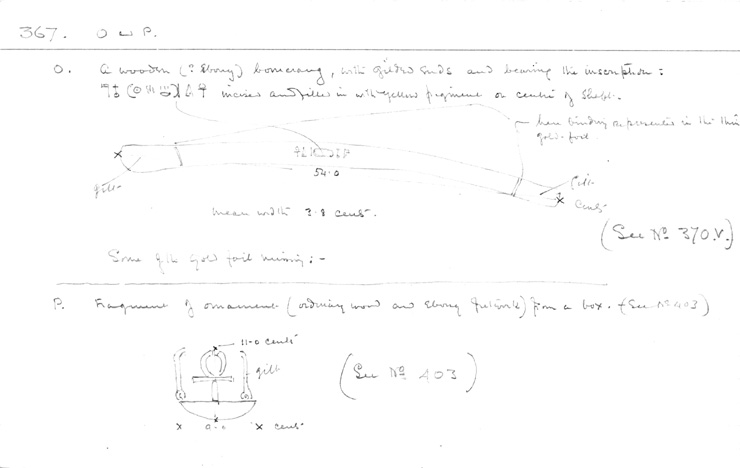 367. O & P.
O. A wooden (? Ebony) boomerang, with gilded ends and bearing the inscription:
incised and filled in with yellow pigment on centre of shaft.
here binding represented in the thin
gold-foil.
54.0
gilt
gilt
Cents
mean width 3.8 cents.
(See No 370.V.)
Some of the gold foil missing:-
P. Fragment of ornament (ordinary wood and ebony fretwork) from a box. (See No 403)
11.0 cents
gilt
(See No 403)
cents